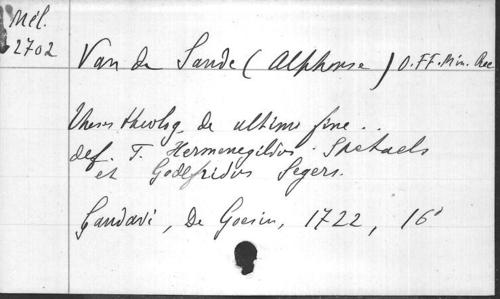 Mél.
2702
Van de Sande (Alphonse) O.FF. Min. Rec
Theses theolog. de ultimo fine..
def. F. Hermenegildus Spetaels
et Godefridus Segers.
Gandavi, De Goesin, 1722, 16°